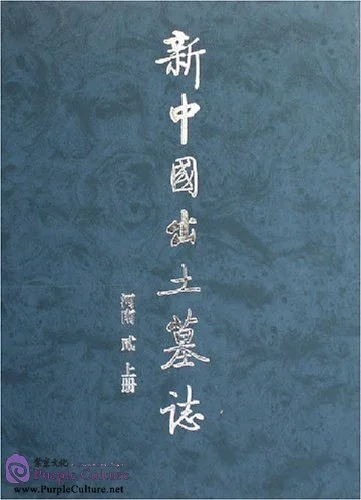 新中國出土墓誌
河南 貳 上册
紫京文化
Purple Culture
www.PurpleCulture.net